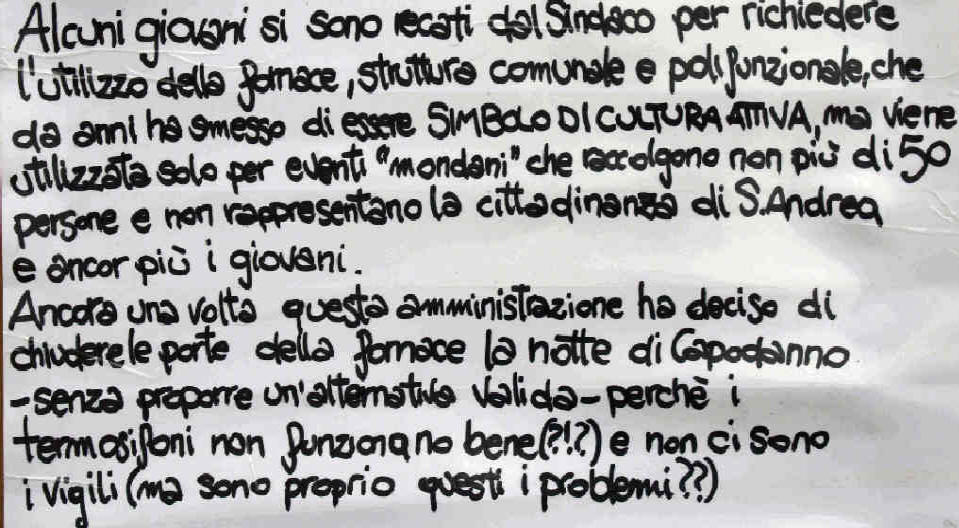 Alcuni giovani si sono recati dal Sindaco per richiedere
l'utilizzo della fornace, struttura comunale e polifunzionale, che
da anni ha smesso di essere SIMBOLO DI CULTURA ATTIVA, ma viene
utilizzata solo per eventi "mondani" che raccolgono non più di 50
persone e non rappresentano la cittadinanza di S.Andrea
e ancor più i giovani.
Ancora una volta questa amministrazione ha deciso di
chiudere le porte della fornace la notte di Capodanno
-senza proporre un'alternativa valida- perchè i
termosifoni non funzionano bene (?!?) e non ci sono
i vigili (ma sono proprio questi i problemi??)